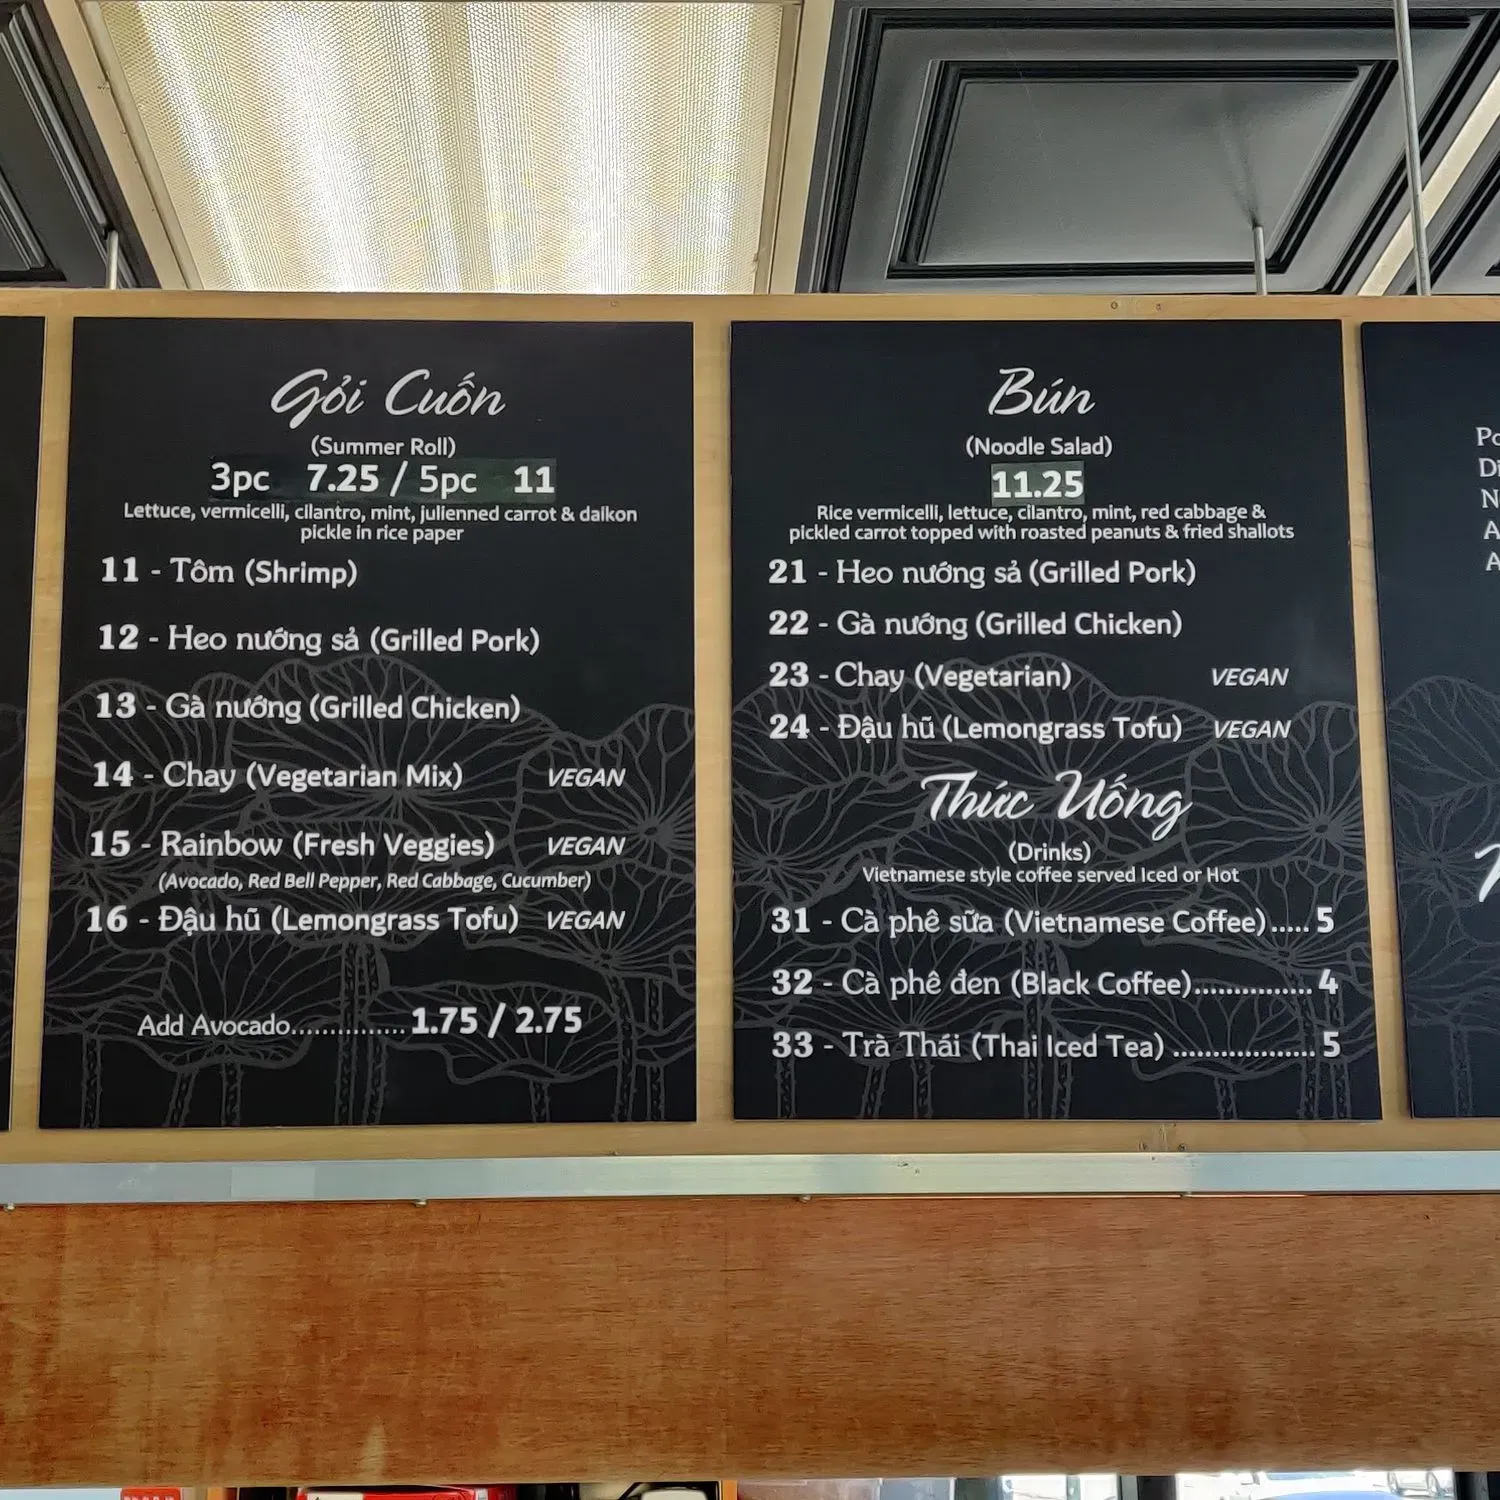 Gỏi Cuốn
(Summer Roll)
3pc 7.25 / 5pc 11
Lettuce, vermicelli, cilantro, mint, julienned carrot & daikon
pickle in rice paper
11 - Tôm (Shrimp)
12 - Heo nướng sả (Grilled Pork)
13 - Gà nướng (Grilled Chicken)
14 - Chay (Vegetarian Mix) VEGAN
15 - Rainbow (Fresh Veggies) VEGAN
(Avocado, Red Bell Pepper, Red Cabbage, Cucumber)
16 - Đậu hũ (Lemongrass Tofu) VEGAN
Add Avocado............... 1.75 / 2.75
Bún
(Noodle Salad)
11.25
Rice vermicelli, lettuce, cilantro, mint, red cabbage &
pickled carrot topped with roasted peanuts & fried shallots
21 - Heo nướng sả (Grilled Pork)
22 - Gà nướng (Grilled Chicken)
23 - Chay (Vegetarian) VEGAN
24 - Đậu hũ (Lemongrass Tofu) VEGAN
Thức Uống
(Drinks)
Vietnamese style coffee served Iced or Hot
31 - Cà phê sữa (Vietnamese Coffee)..... 5
32 - Cà phê đen (Black Coffee)............... 4
33 - Trà Thái (Thai Iced Tea) .................. 5